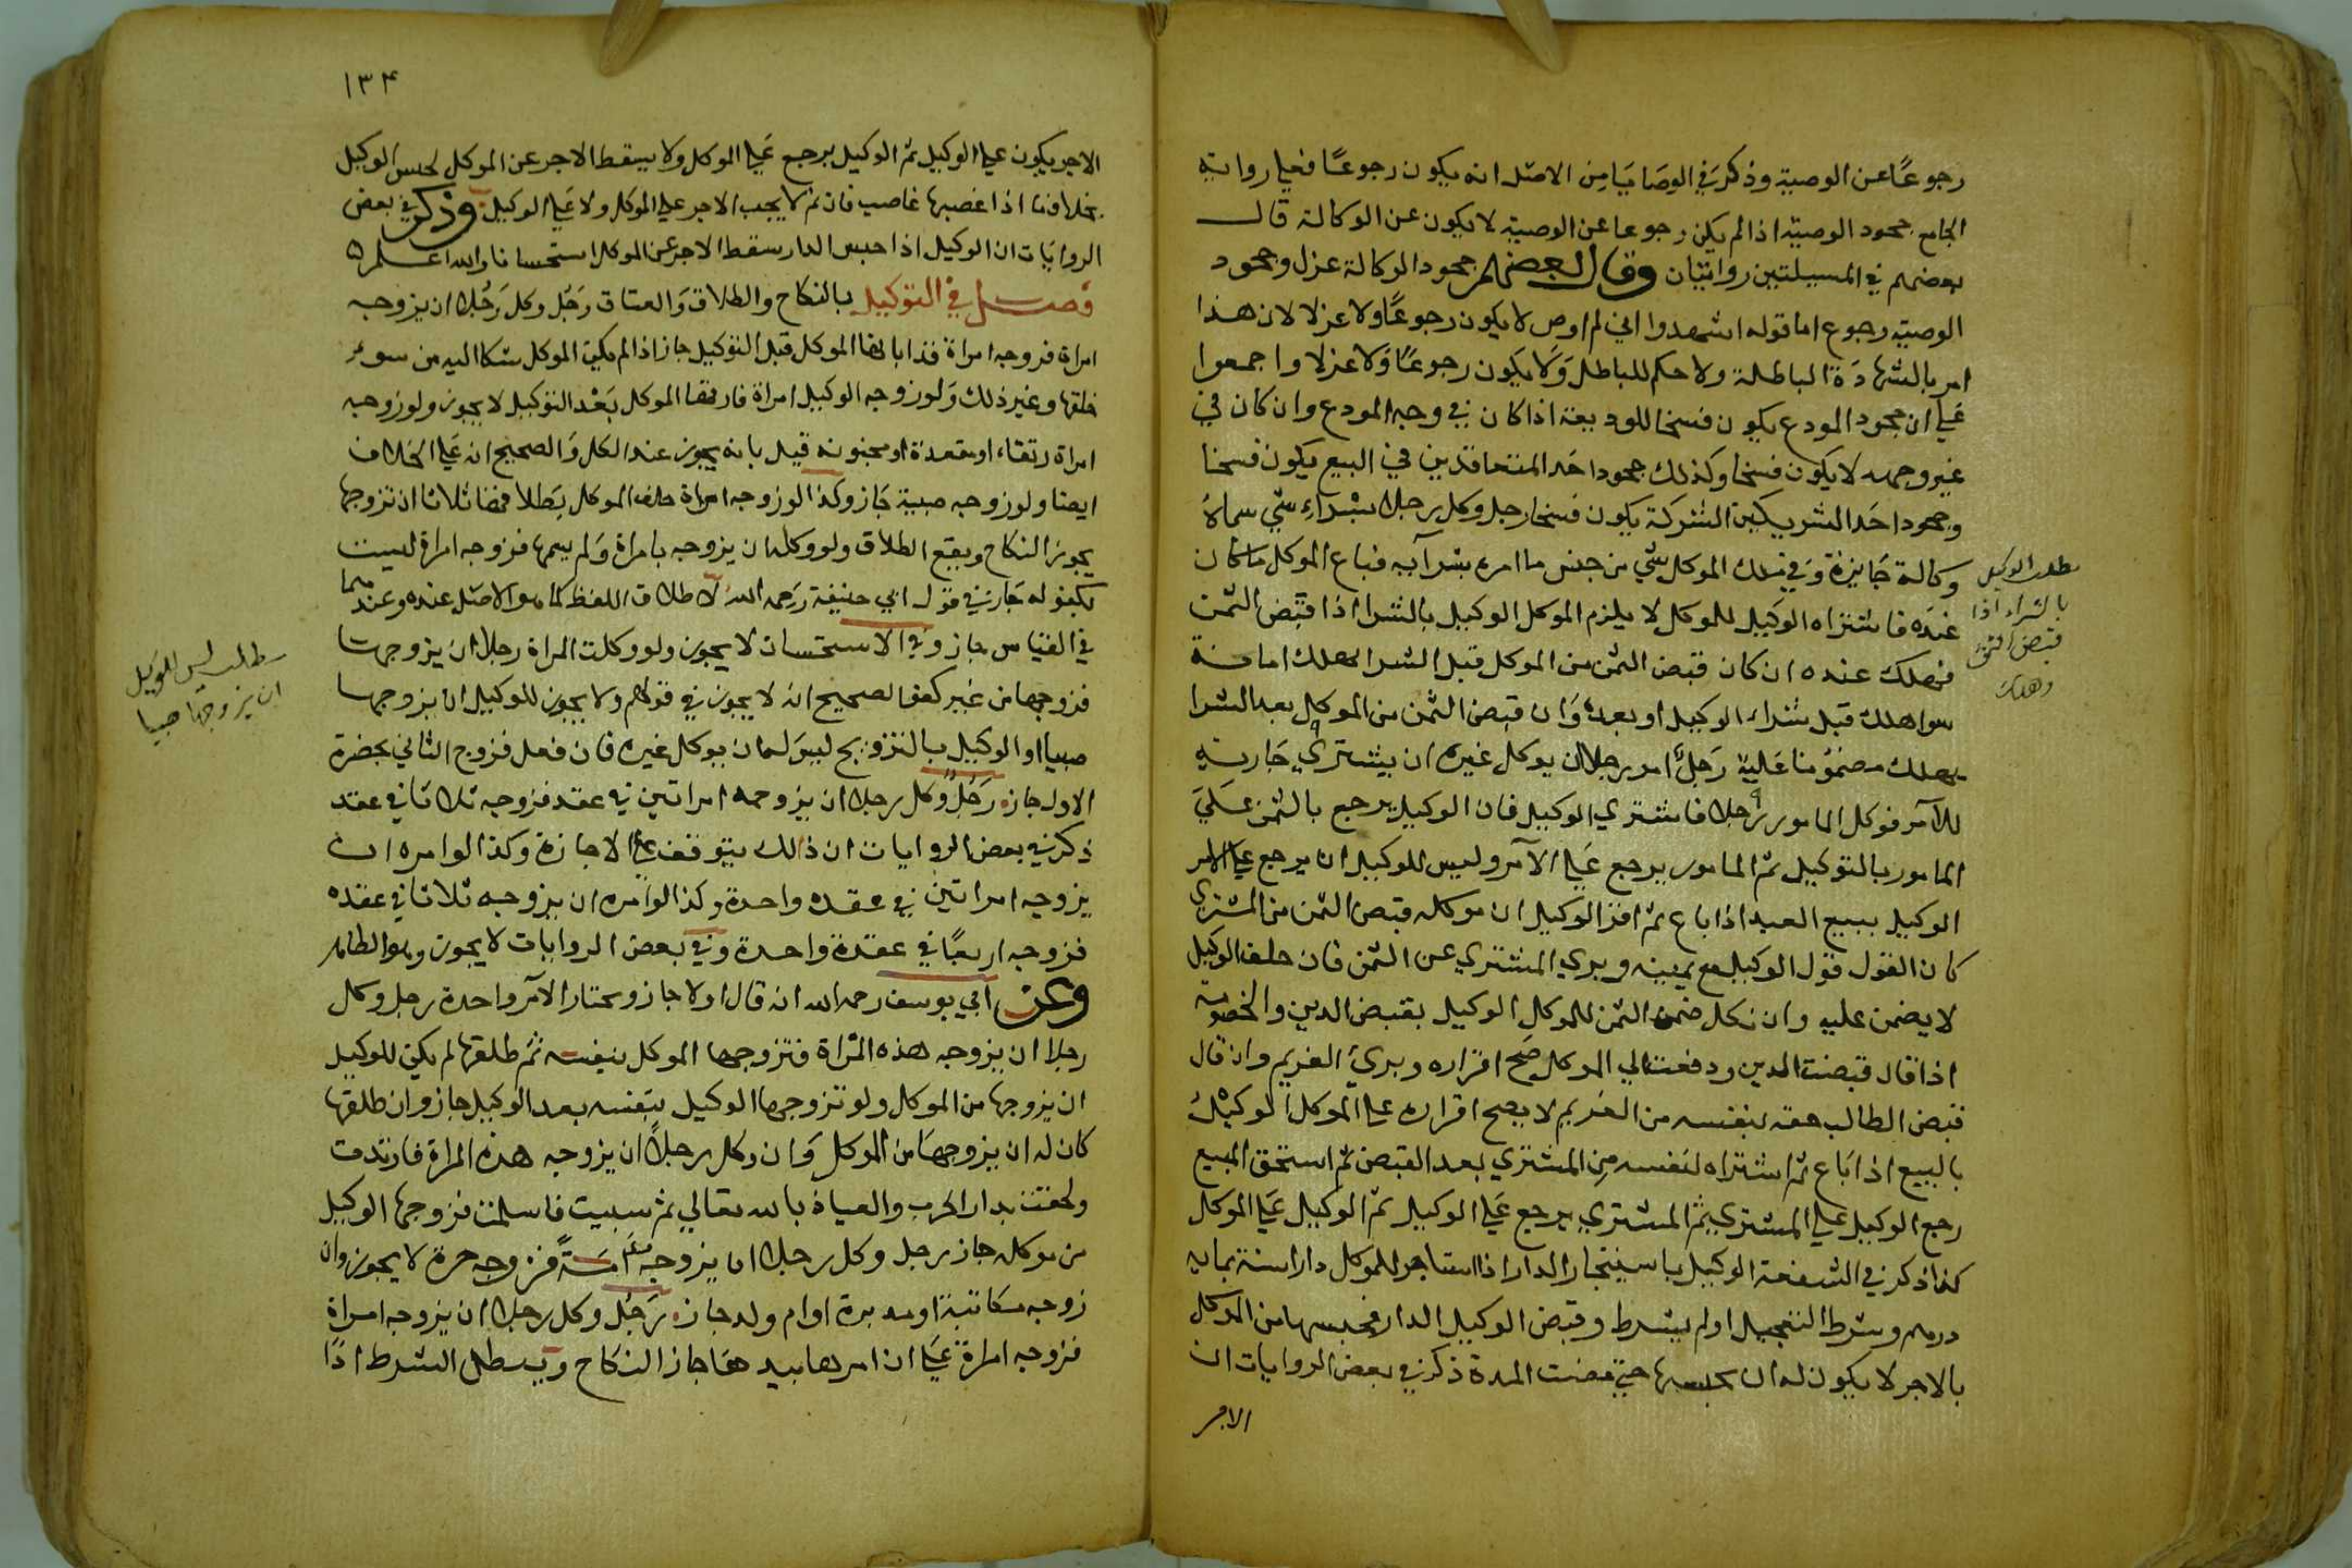 رجوعًا عن الوصية وذكر في الوصايا من الاصل انه يكون رجوعًا فعلي رواية
الجامع جحود الوصية اذا لم يكن رجوعا عن الوصية لا يكون عن الوكالة قال
بعضهم في المسيلتين روايتان وقال بعضهم جحود الوكالة عزل وجحود
الوصية رجوع اما قوله اشهدوا اني لم اوص لا يكون رجوعًا ولا عزلا لان هذا
امر بالشهادة الباطلة ولا حكم للباطل ولا يكون رجوعًا ولا عزلا واجمعوا
علي ان جحود المودع يكون فسخا للوديعة اذا كان في وجه المودع وان كان في
غير وجهه لا يكون فسخا وكذلك جحود احد المتعاقدين في البيع يكون فسخا
وجحود احد الشريكين الشركة يكون فسخا رجل وكل رجلا بشراء شي سماه
وكالة جايزة وفي ملك الموكل شي من جنس ما امره بشرآيه فباع الموكل ما كان
عنده فاشتراه الوكيل للموكل لا يلزم الموكل الوكيل بالشرا اذا قبض الثمن
فهلك عنده ان كان قبض الثمن من الموكل قبل الشرا يهلك امانة
سوا هلك قبل شراء الوكيل او بعده وان قبض الثمن من الموكل بعد الشرا
يهلك مضمونا عليه رجل امر رجلا ان يوكل غيره ان يشتري جارية
للآمر فوكل المامور رجلا فاشتري الوكيل فان الوكيل يرجع بالثمن علي
المامور بالتوكيل ثم المامور يرجع علي الآمر وليس للوكيل ان يرجع علي الامر
الوكيل ببيع العبد اذا باع ثم اقر الوكيل ان موكله قبض الثمن من المشتري
كان القول قول الوكيل مع يمينه وبري المشتري عن الثمن فان حلف الوكيل
لا يضمن عليه وان نكل ضمن الثمن للموكل الوكيل بقبض الدين والخصومة
اذا قال قبضت الدين ودفعت الي الموكل صح اقراره وبرئ الغريم وان قال
قبض الطالب حقه بنفسه من الغريم لا يصح اقراره علي الموكل الوكيل
بالبيع اذا باع ثم اشتراه لنفسه من المشتري بعد القبض ثم استحق المبيع
رجع الوكيل علي المشتري ثم المشتري يرجع علي الوكيل ثم الوكيل علي الموكل
كذا ذكر في الشفعة الوكيل باستيجار الدار اذا استاجر للموكل دارا سنة بماية
درهم وشرط التعجيل او لم يشرط وقبض الوكيل الدار فحبسها من الموكل
بالاجر لا يكون له ان يحبسها حتي مضت المدة ذكر في بعض الروايات ان
الاجر
مطلب الوكيل
بالشراء اذا
قبض الثمن
وهلك
١٣٤
الاجر يكون علي الوكيل ثم الوكيل يرجع علي الموكل ولا يسقط الاجر عن الموكل لحبس الوكيل
بخلاف ما اذا غصبها غاصب فان ثم لا يجب الاجر علي الموكل ولا علي الوكيل وذكر في بعض
الروايات ان الوكيل اذا حبس الدار سقط الاجر عن الموكل استحسانا والله اعلم
فصل في التوكيل بالنكاح والطلاق والعتاق رجل وكل رجلا ان يزوجه
امراة فزوجه امراة قد ابانها الموكل قبل التوكيل جاز اذا لم يكن الموكل شكا اليه من سوء
خلقها وغير ذلك ولو زوجه الوكيل امراة فارقها الموكل بعد التوكيل لا يجوز ولو زوجه
امراة رتقاء او مقعدة او مجنونة قيل بانه يجوز عند الكل والصحيح انه علي الخلاف
ايضا ولو زوجه صبية جاز وكذا لو زوجه امراة حلف الموكل بطلاقها ثلاثا ان تزوجها
يجوز النكاح ويقع الطلاق ولو وكله ان يزوجه بامراة ولم يسمها فزوجه امراة ليست
بكفو له جاز في قول ابي حنيفة رحمه الله لاطلاق اللفظ كما هو الاصل عنده وعندهما
في القياس جاز وفي الاستحسان لا يجوز ولو وكلت المراة رجلا ان يزوجها
فزوجها من غير كفو الصحيح انه لا يجوز في قولهم ولا يجوز للوكيل ان يزوجها
صبيا او الوكيل بالتزويج ليس له ان يوكل غيره فان فعل فزوج الثاني بحضرة
الاول جاز رجل وكل رجلا ان يزوجه امراتين في عقد فزوجه ثلاثا في عقد
ذكر في بعض الروايات ان ذلك يتوقف علي الاجازة وكذا لو امره ان
يزوجه امراتين في عقدة واحدة وكذا لو امره ان يزوجه ثلاثا في عقده
فزوجه اربعًا في عقدة واحدة وفي بعض الروايات لا يجوز وهو الظاهر
وعن ابي يوسف رحمه الله انه قال اولا جاز ويختار الآمر واحدة رجل وكل
رجلا ان يزوجه هذه المراة فتزوجها الموكل بنفسه ثم طلقها لم يكن للوكيل
ان يزوجها من الموكل ولو تزوجها الوكيل بنفسه بعد الوكيل جاز وان طلقها
كان له ان يزوجها من الموكل وان وكل رجلاً ان يزوجه هذه المراة فارتدت
ولحقت بدار الحرب والعياذ بالله تعالي ثم سبيت فاسلمت فزوجها الوكيل
من موكله جاز رجل وكل رجلا ان يزوجه امةً فزوجه حرة لا يجوز وان
زوجه مكاتبة او مدبرة او ام ولد جاز رجل وكل رجلا ان يزوجه امراة
فزوجه امراة علي ان امرها بيدها جاز النكاح ويبطل الشرط اذا
مطلب ليس للوكيل
ان يزوجها صبيا